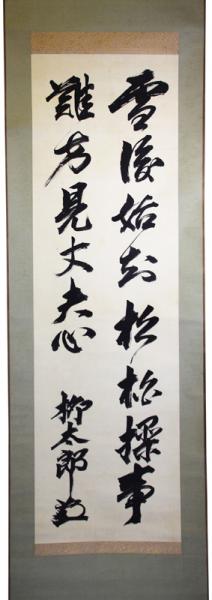 雪後始知松柏操事
難方見丈夫心
柳太郎書